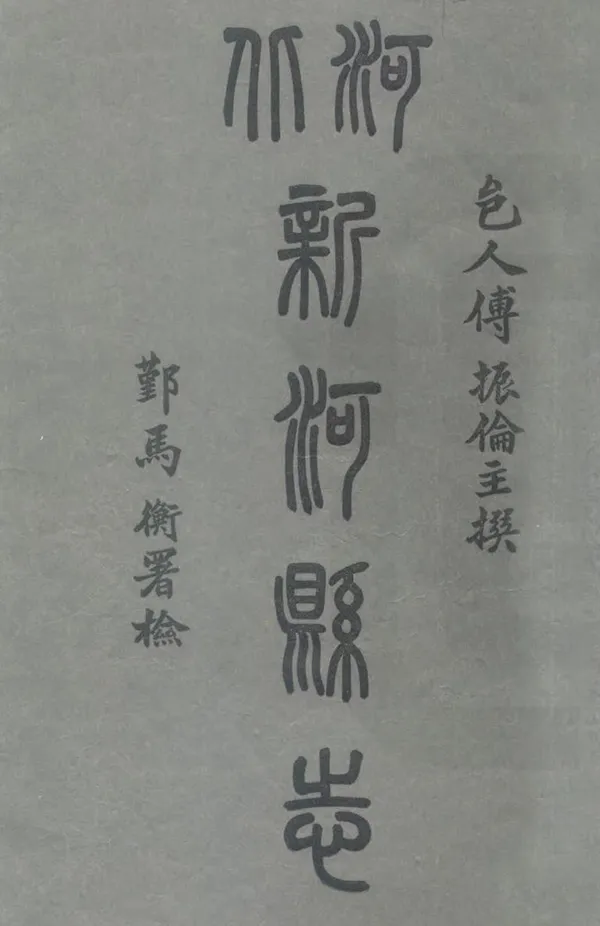 邑人傅振倫主撰
河北
新河縣志
鄞馬衡署檢